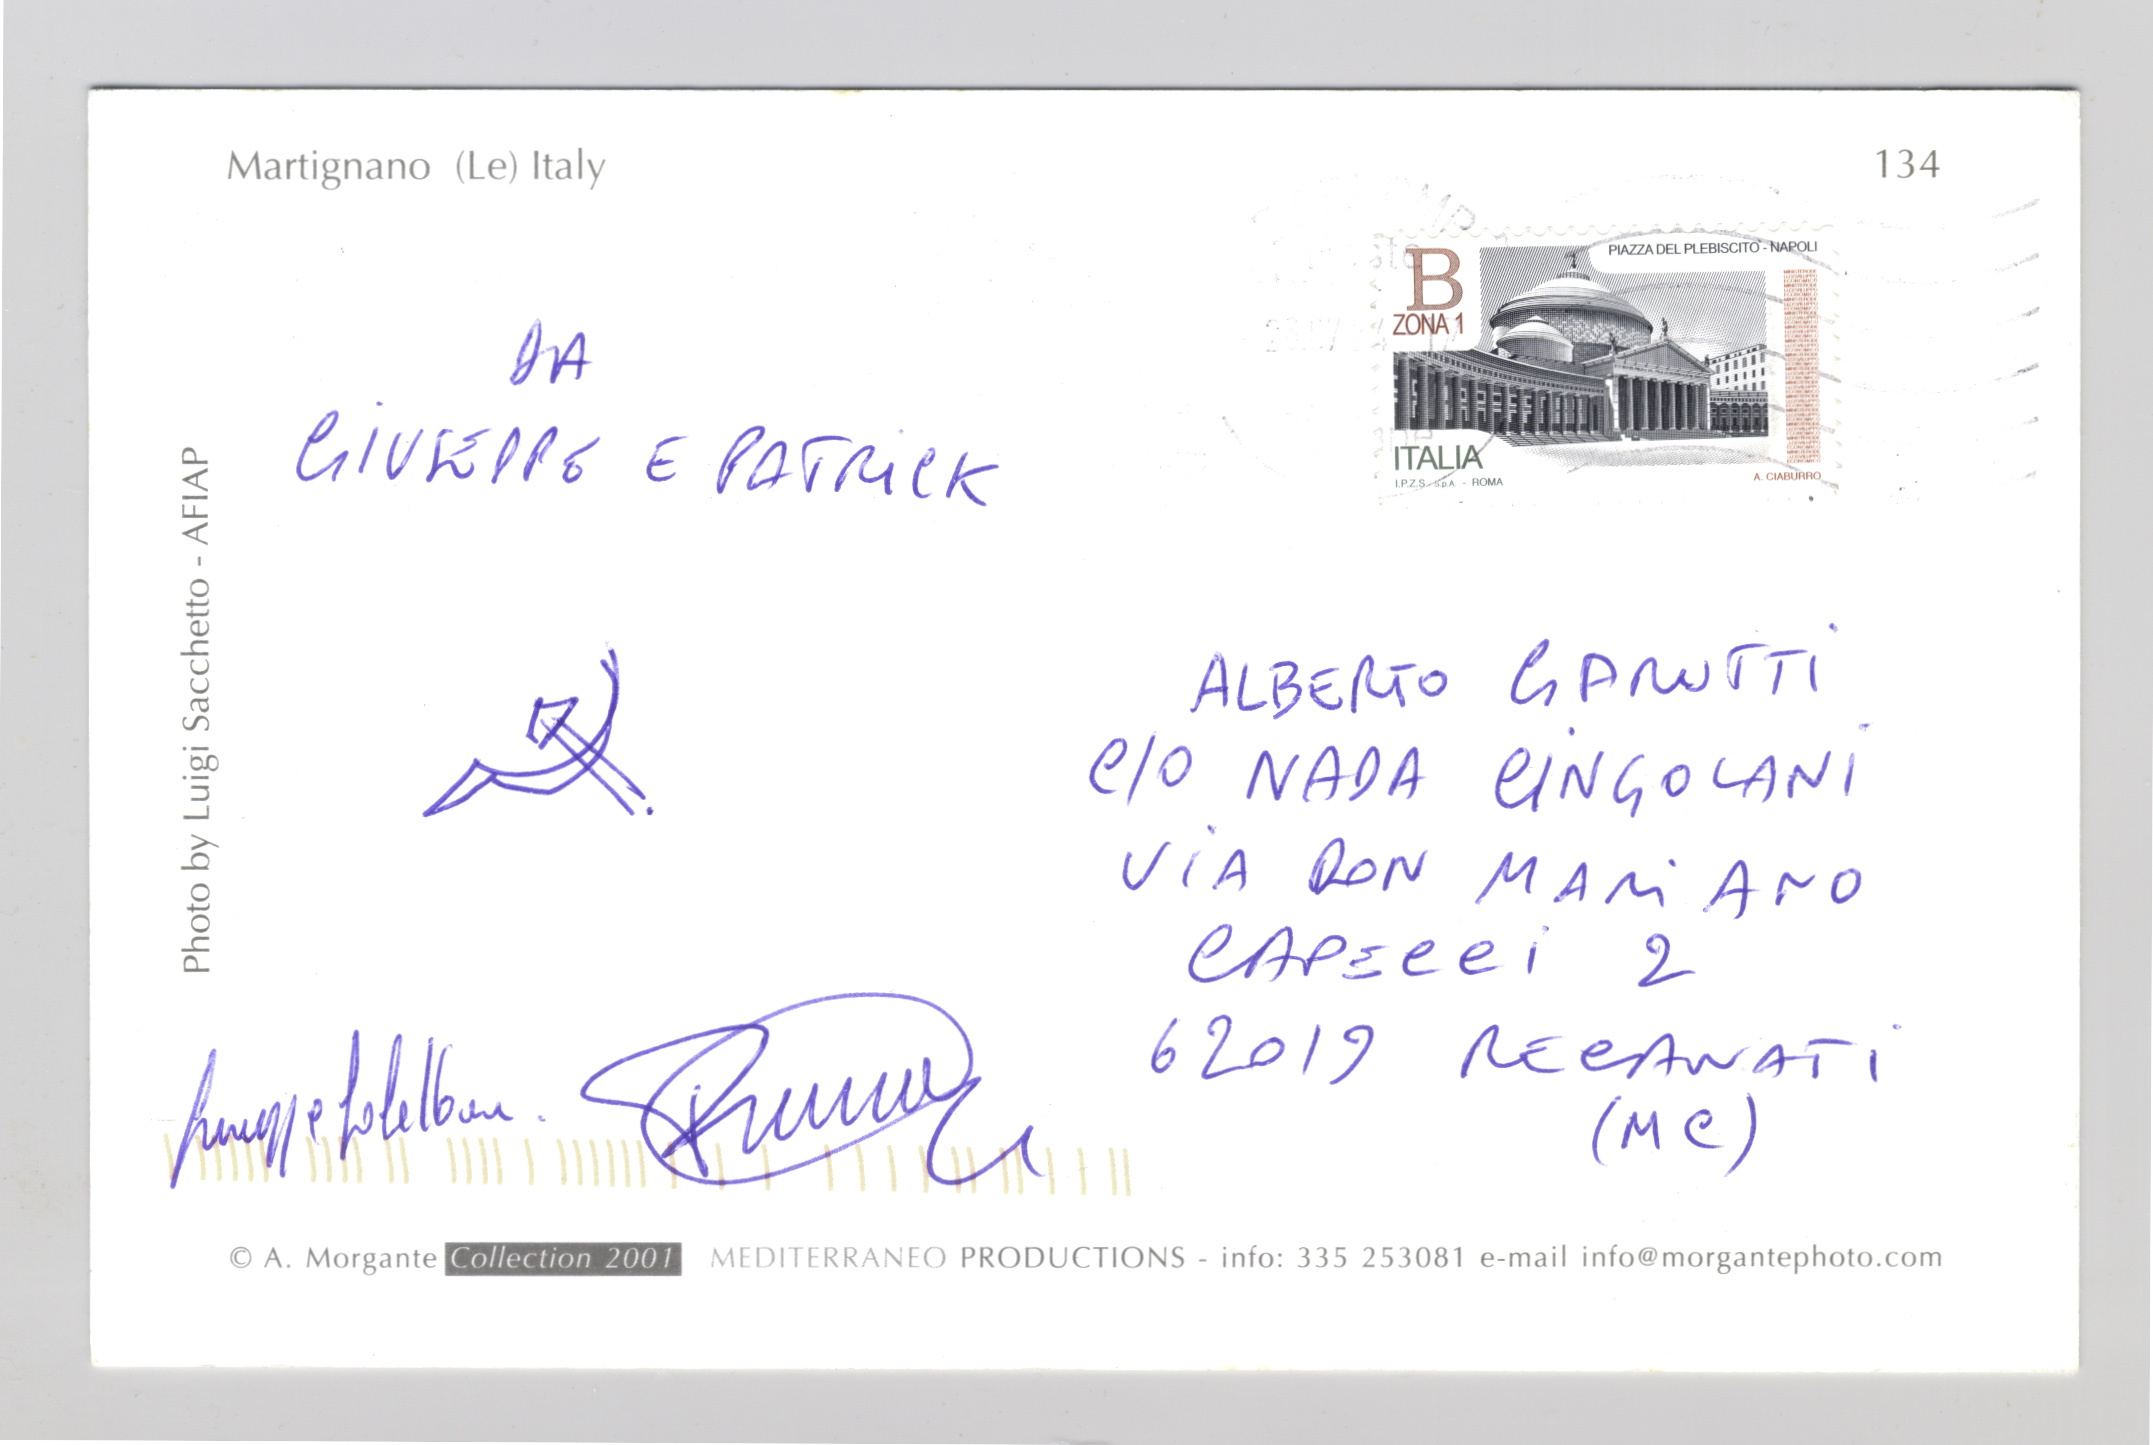 Martignano (Le) Italy
134
B
ZONA 1
PIAZZA DEL PLEBISCITO - NAPOLI
ITALIA
I.P.Z.S. S.p.A. - ROMA
A. CIABURRO
DA
GIUSEPPE E PATRICK
Photo by Luigi Sacchetto - AFIAP
ALBERTO GARUTTI
C/O NADA CINGOLANI
VIA DON MARIANO
CAPECCI 2
62019 RECANATI
(MC)
© A. Morgante Collection 2001 MEDITERRANEO PRODUCTIONS - info: 335 253081 e-mail info@morgantephoto.com